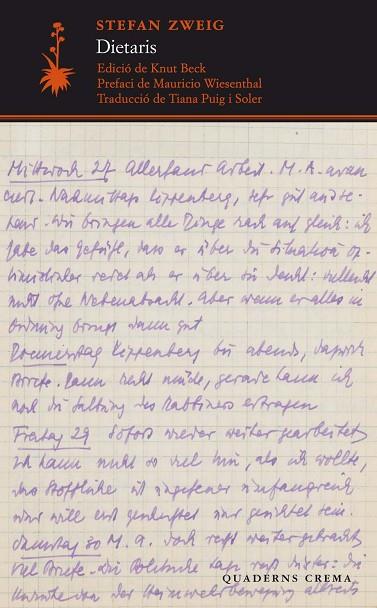 STEFAN ZWEIG
Dietaris
Edició de Knut Beck
Prefaci de Mauricio Wiesenthal
Traducció de Tiana Puig i Soler
Mittwoch 27 Allerhand Arbeit. M. A. avan
ciert. Nachmittags Kippenberg, sehr gut
Wir bringen alle Dinge nach auf gleich: ich
habe das Gefühl, dass er über die Situation op-
timistischer redet als er über sie denkt: vielleicht
nicht ohne Nebenabsicht. Aber wenn er alles in
Ordnung bringt dann gut
Donnerstag Kippenberg bis abends, dazwisch
Briefe. Dann recht müde, gerade kann ich
noch die des Rabbiners ertragen
Freitag 29 Sofort wieder weiter gearbeitet
Ich kann nicht so viel tun, als ich wollte,
das Stoffliche ist ungeheuer umfangreich
und will erst sein.
Samstag 30 M. A. doch recht weiter gebracht
Viel Briefe. Die Politische Lage recht düster: die
der Heimwehrbewegung
QUADERNS CREMA